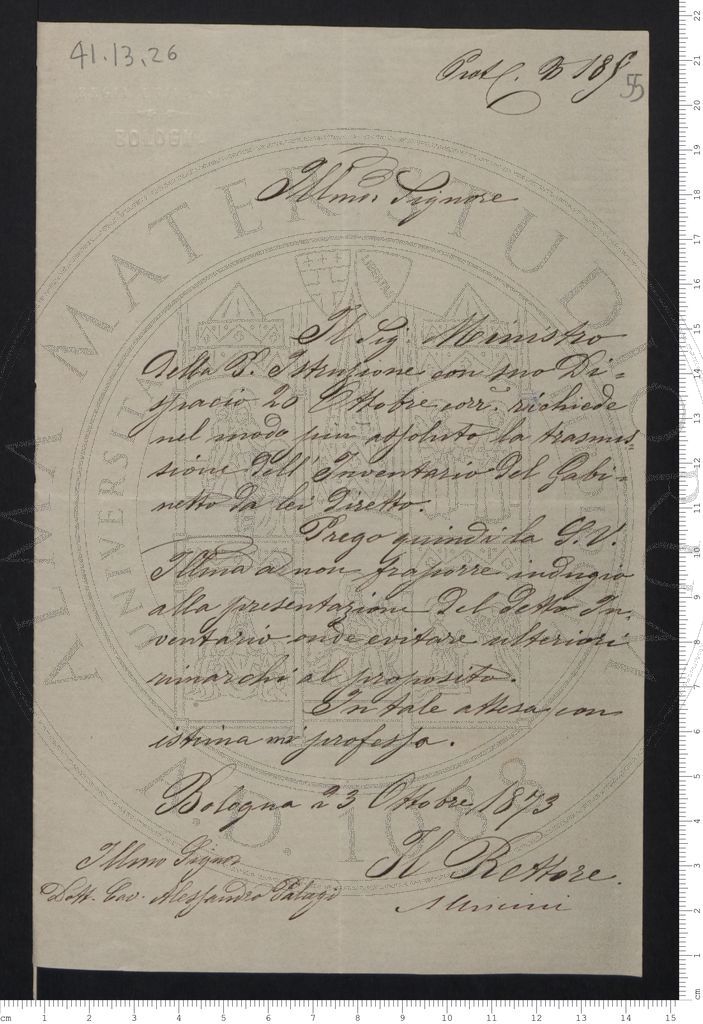 41.13.26
Prot.
55
Illmo Signore
Il Sig. Ministro
della P. Istruzione con suo Di=
spaccio 20 Ottobre corr. richiede
nel modo più assoluto la trasmis=
sione dell'Inventario del Gabi=
netto da lei diretto.
Prego quindi la S. V.
Illma a non frapporre indugio
alla presentazione del detto In=
ventario onde evitare ulteriori
rimarchi al proposito.
In tale attesa con
istima mi professo.
Bologna 23 Ottobre 1873
Illmo Signor
Dott. Cav. Alessandro Palagi
Il Rettore.
ALMA MATER STUDIORUM
UNIVERSITA
LIBERTAS
A.D. 1088